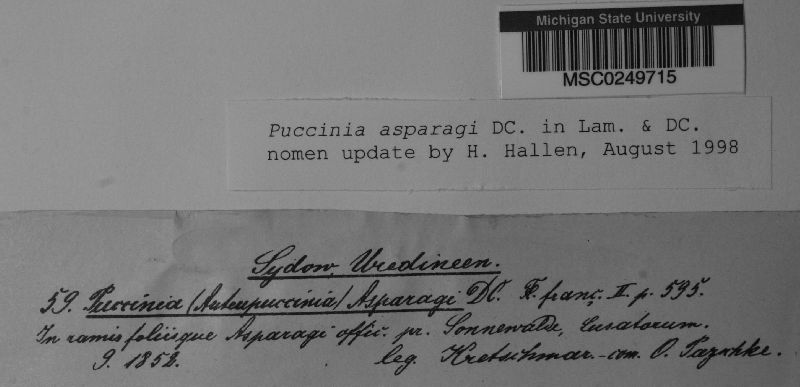 Michigan State University
MSC0249715
Puccinia asparagi DC. in Lam. & DC.
nomen update by H. Hallen, August 1998
Sydow, Uredineen.
59. Puccinia (Auteupuccinia) Asparagi DC. Fl. franç. II. p. 595.
In ramis foliisque Asparagi offic. pr. Sonnewalde, Lusatorum.
9. 1852. leg. Kretschmar. - com. O. Pazschke.